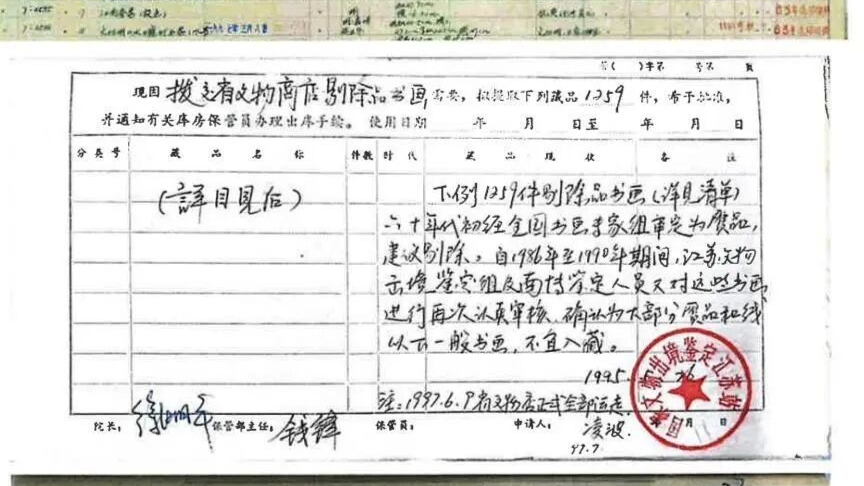 第( )字第 号第 頁
现因拨交省文物商店剔除品书画需要,拟提取下列藏品1259件,希予批准,
并通知有关库房保管员办理出库手续。使用日期 年 月 日至 年 月 日
分类号 藏品名称 件数 时代 藏品现状 备注
(詳目见后)
下例1259件剔除品书画(详见清单)
六十年代初经全国书画专家组审定为赝品,
建议剔除。自1986年至1990年期间,江苏文物
出境鉴定组及南博鉴定人员又对这些书画
进行再次认真审核,确认为大部分赝品和线
以下一般书画,不宜入藏。
1995
注:1997.6.9省文物店正式全部运走
院长: 徐湖平 保管部主任: 钱锋 保管员: 申请人: 凌波
97.7
国家文物出境鉴定江苏站
月 日